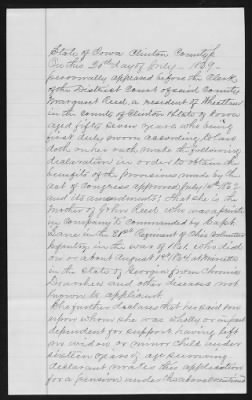 State of Iowa Clinton County
On this 20th day of July 1889
personally appeared before the Clerk
of the District Court of said County
Margaret Reed, a resident of Wheatland
in the County of Clinton State of Iowa
aged fifty seven years who being
first duly sworn according to law
doth on her oath make the following
declaration in order to obtain the
benefits of the provisions made by the
act of Congress approved July 14th
and its amendments; that she is the
Mother of John Reed who was a private
in Company Commanded by Capt
Lane in the Regiment of Ohio Volunteer
Infantry in the war of 1861 who died
on or about August 1st 1864 at
in the State of Georgia from Chronic
Diarrhea and other diseases not
known to applicant
She further declares that her said son
upon whom she was wholly or in part
dependent for support having left
no widow or minor child under
sixteen years of age surviving
declarant makes this application
for a pension under the above mentioned